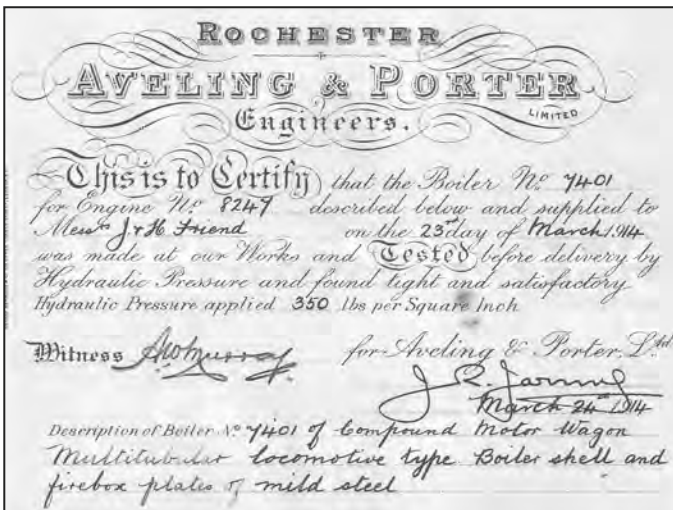 ROCHESTER
AVELING & PORTER
LIMITED
Engineers.
This is to Certify that the Boiler No. 7401
for Engine No. 8247 described below and supplied to
Messrs J & H Friend on the 23 day of March 1914
was made at our Works and Tested before delivery by
Hydraulic Pressure and found tight and satisfactory
Hydraulic Pressure applied 350 lbs per Square Inch
Witness Murray for Aveling & Porter, Ltd.
March 24th 1914
Description of Boiler No. 7401 of Compound Motor Wagon
Multitubular locomotive type Boiler shell and
firebox plates of mild steel